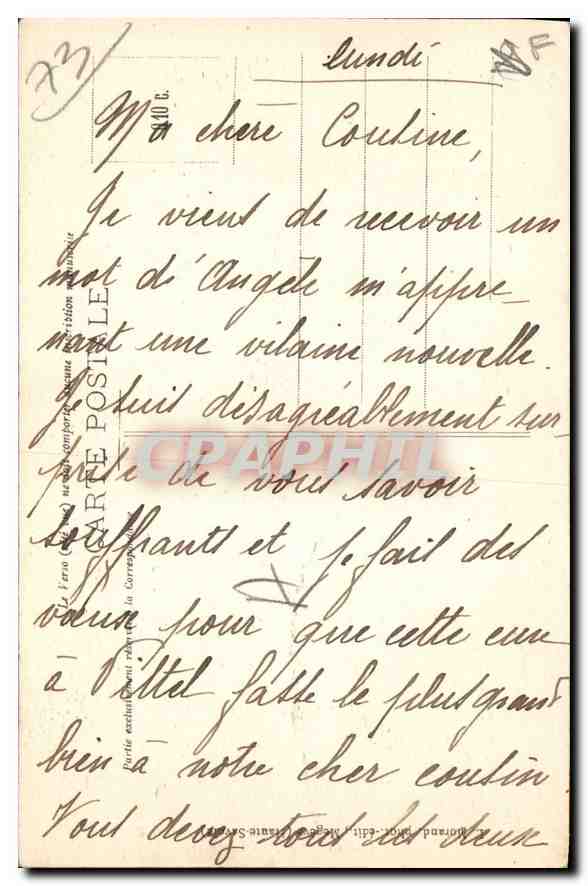 73
lundi
AF
10 c.
Ma chère Cousine,
Je viens de recevoir un
mot d'Angèle m'appre-
nant une vilaine nouvelle.
Je suis désagréablement sur-
prise de vous savoir
souffrants et je fais des
vœux pour que cette cure
à Vittel fasse le plus grand
bien à notre cher cousin
Vous devez tous les deux
CARTE POSTALE
Le Verso (côté vue) ne doit comporter aucune inscription manuscrite
Partie exclusivement réservée à la Correspondance
Morand, phot.-édit., Megève (Haute-Savoie)
CPAPHIL